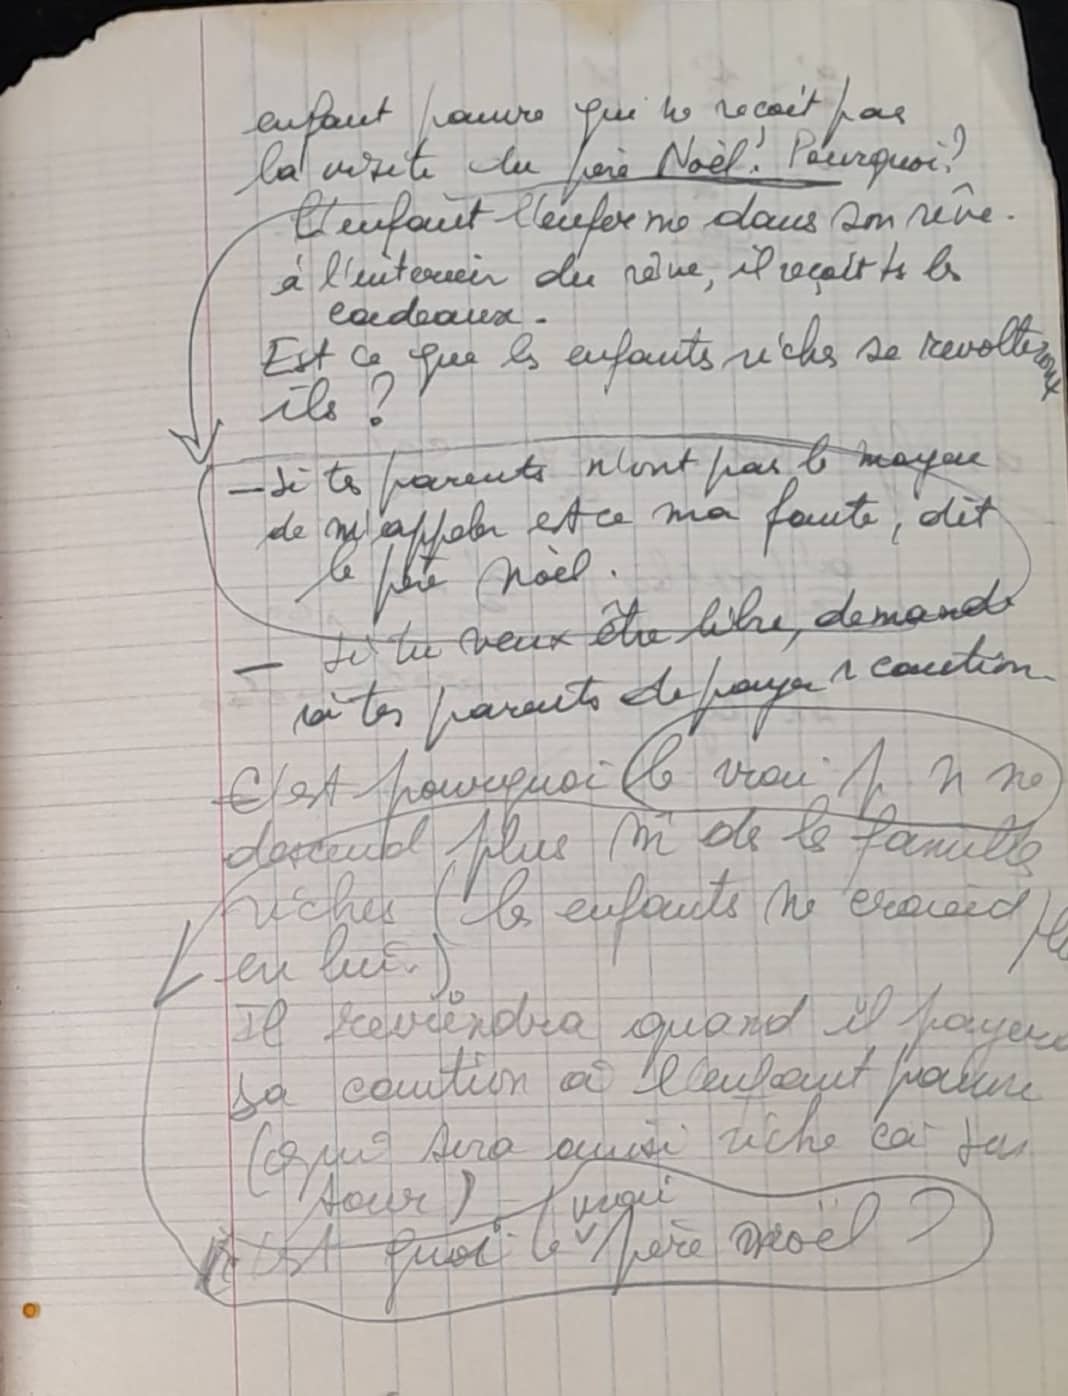 enfant pauvre qui ne reçoit pas
la visite du père Noël! Pourquoi?
L'enfant l'enferme dans son rêve.
à l'intérieur du rêve, il reçoit ts les
cadeaux.
Est ce que les enfants riches se revolteront
ils ?
- Si tes parents n'ont pas le moyen
de m'appeler est ce ma faute, dit
le père Noël.
- si tu veux être libre, demande
à tes parents de payer 1 caution.
C'est pourquoi le vrai p n ne
descend plus m de les familles
riches (les enfants ne croient plus
en lui.)
Il reviendra quand il payera
sa caution à l'enfant pauvre
(qui sera aussi riche à son
tour)
vrai
C'est quoi le père noël ?